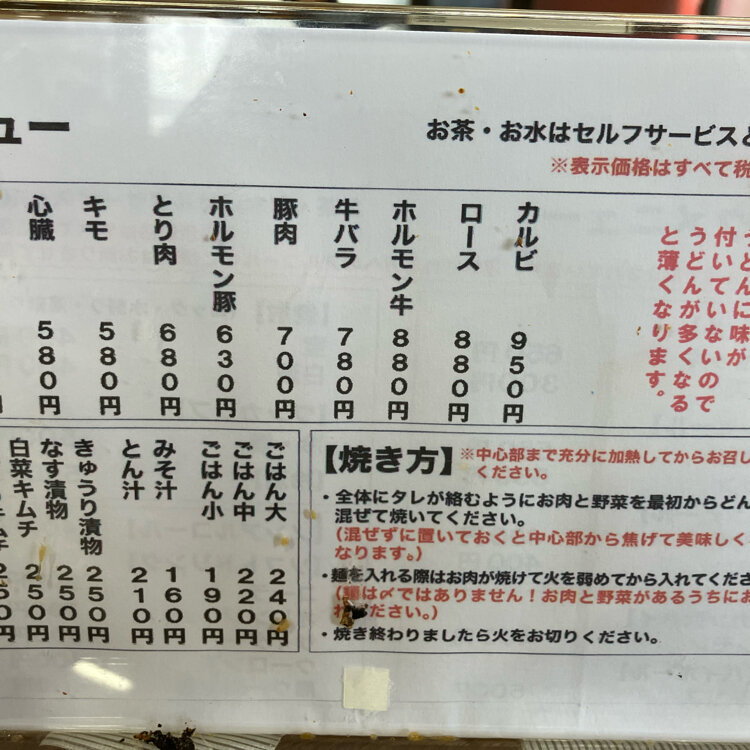 ュー
お茶・お水はセルフサービスと
※表示価格はすべて税
カルビ 950円
ロース 880円
ホルモン牛 880円
牛バラ 780円
豚肉 700円
ホルモン豚 630円
とり肉 680円
キモ 580円
心臓 580円
円
うどんに味が
付いていないので
うどんが多くなる
と薄くなります。
ごはん大 240円
ごはん中 220円
ごはん小 190円
みそ汁 160円
とん汁 210円
きゅうり漬物 250円
なす漬物 250円
白菜キムチ 250円
キムチ 250円
【焼き方】※中心部まで充分に加熱してからお召し
ください。
・全体にタレが絡むようにお肉と野菜を最初からどん
混ぜて焼いてください。
(混ぜずに置いておくと中心部から焦げて美味しく
なります。)
・麺を入れる際はお肉が焼けて火を弱めてから入れてくださ
(麺は〆ではありません！お肉と野菜があるうちにお
ください。)
・焼き終わりましたら火をお切りください。